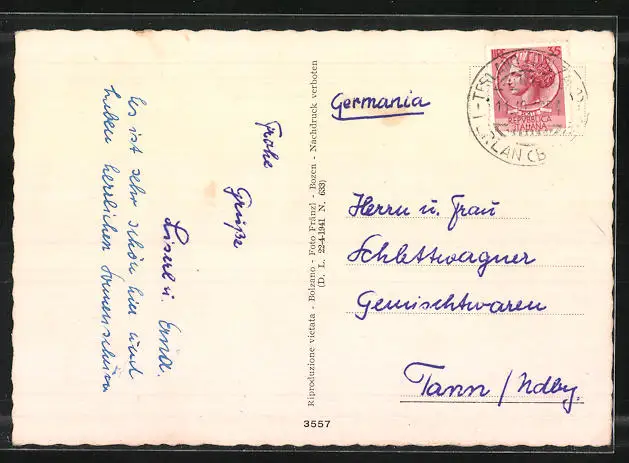 Es ist sehr schön hier und
haben herrlichen Sonnenschein
Frohe
Grüße
Liserl u. Erna.
Riproduzione vietata - Bolzano - Foto Fränzl - Bozen - Nachdruck verboten
(D. L. 22-4-1941 N. 633)
3557
Germania
LIRE 35
REPVBBLICA
ITALIANA
TERLANO
TERLAN (B
Herrn u. Frau
Schlettwagner
Gemischtwaren
Tann / Ndby.